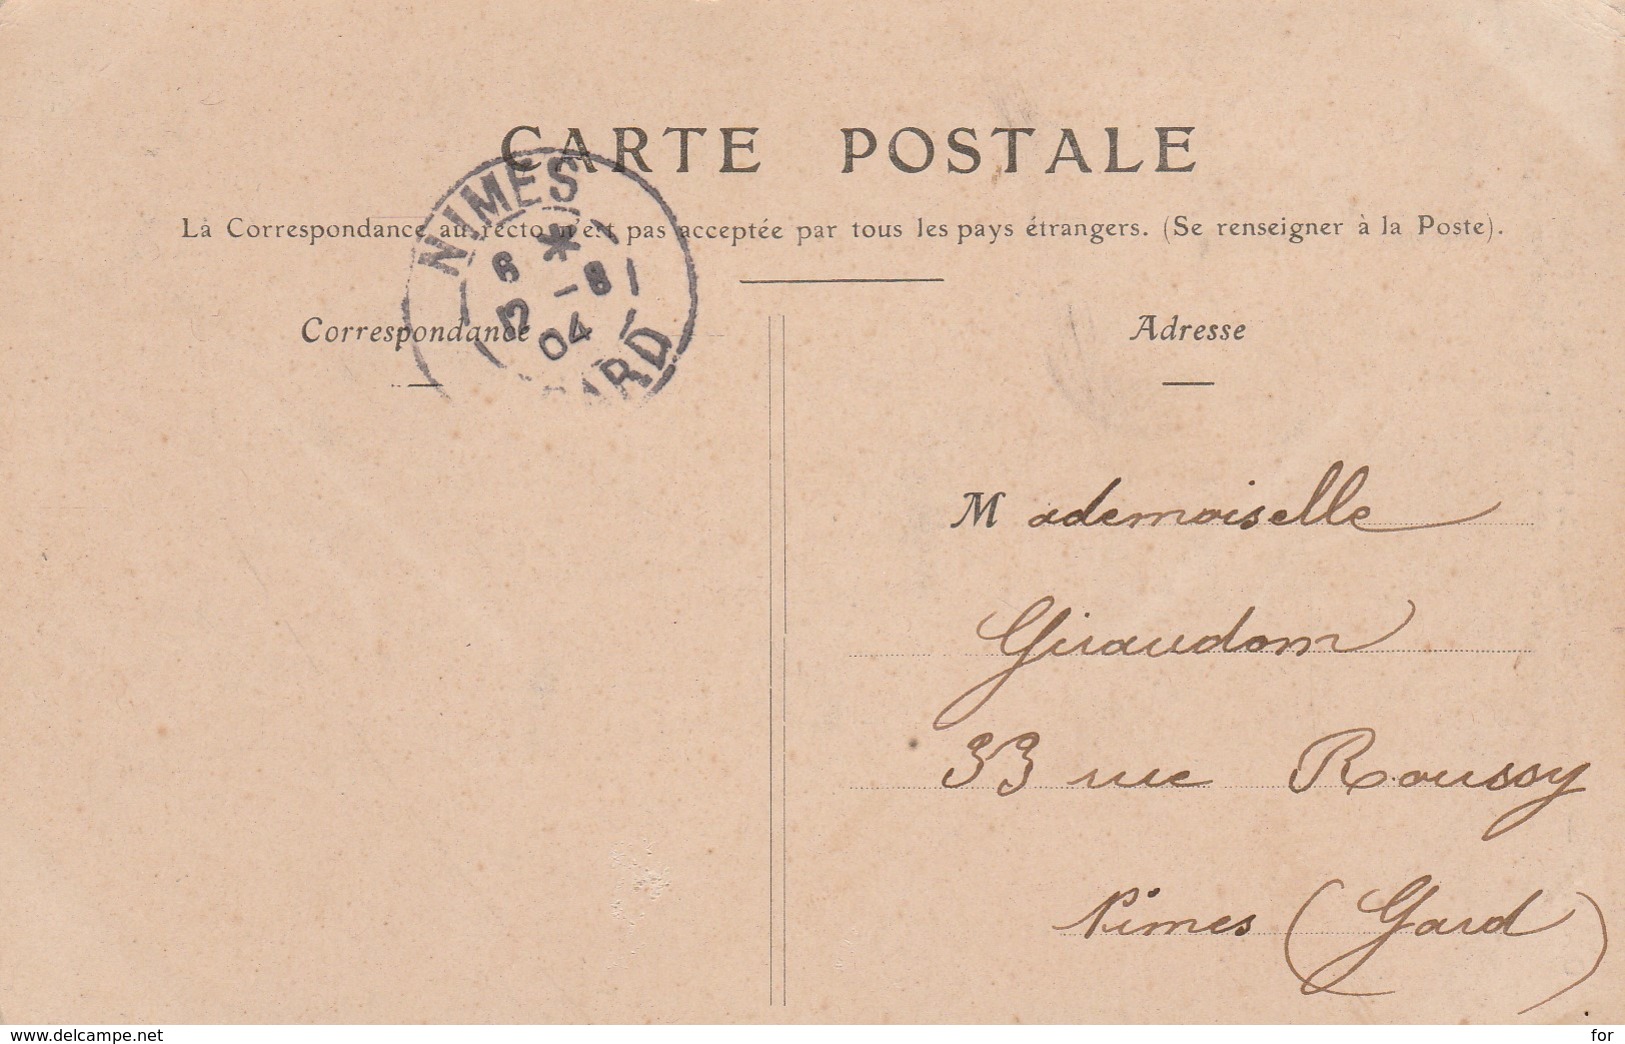 CARTE POSTALE
La Correspondance au recto n'est pas acceptée par tous les pays étrangers. (Se renseigner à la Poste).
NIMES
6 *
12 -8
04
GARD
Correspondance
Adresse
Mademoiselle
Giraudon
33 rue Roussy
Nimes (Gard)
www.delcampe.net
for